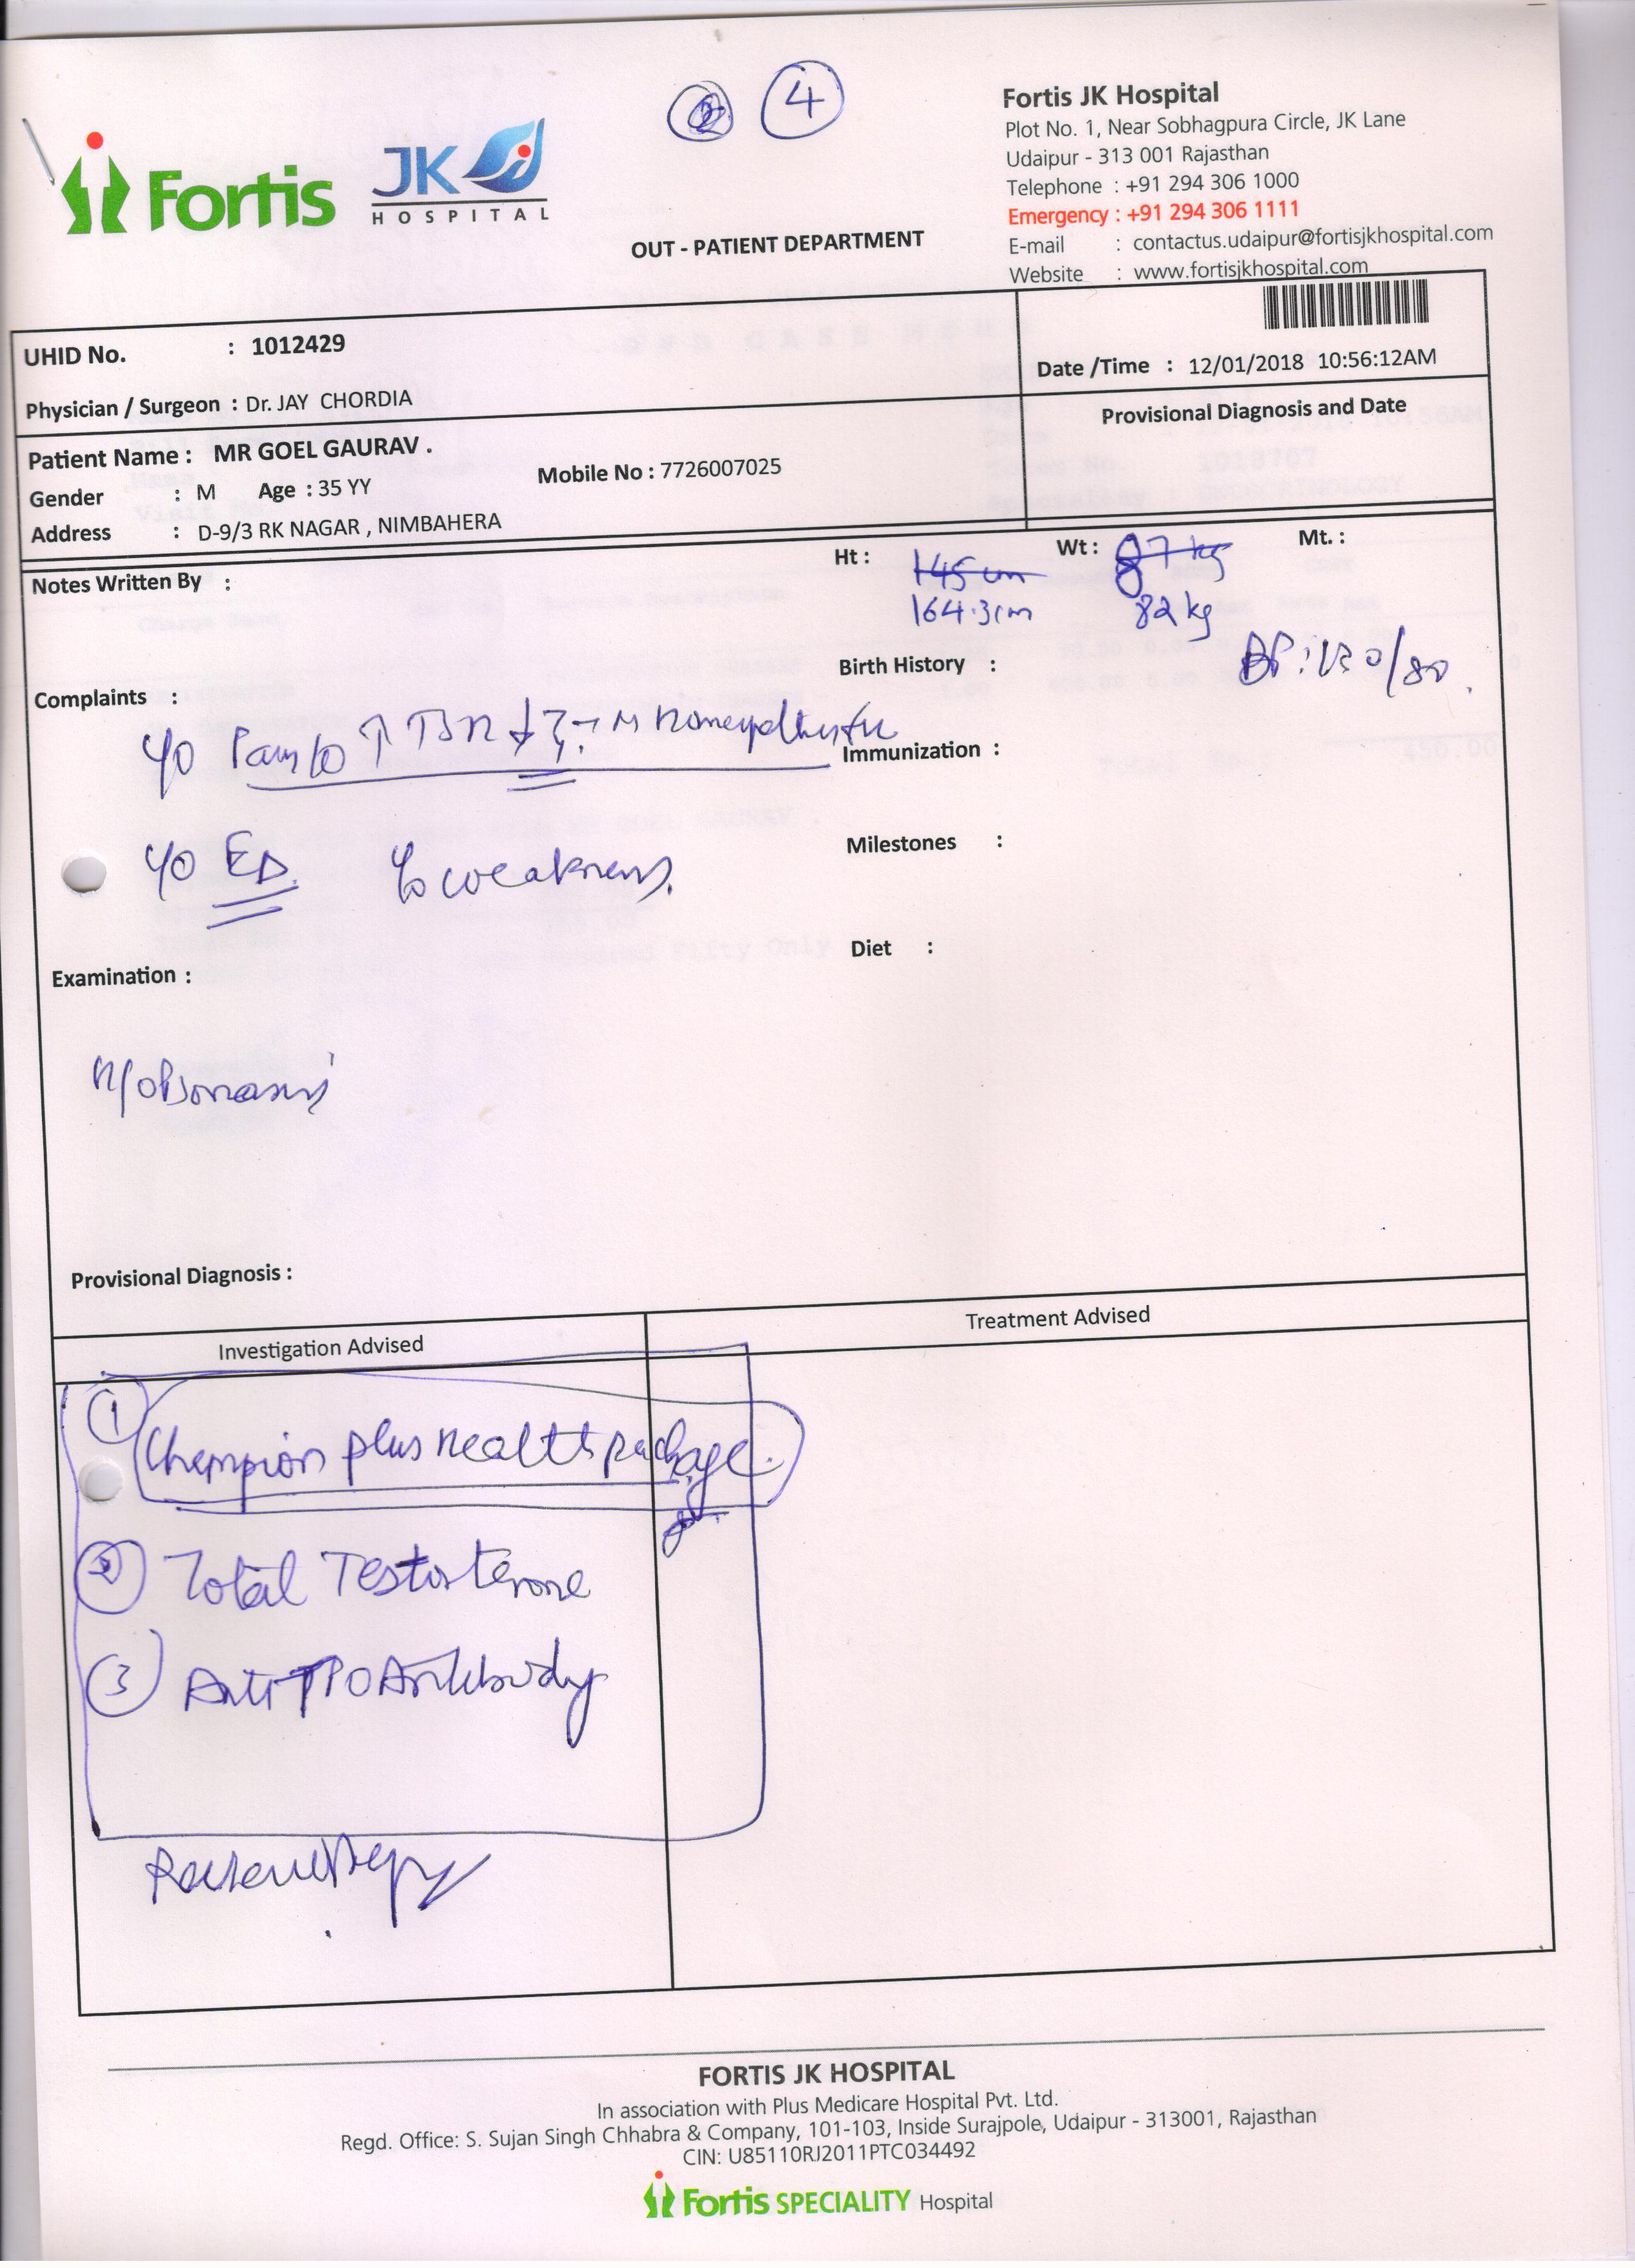 4
Fortis JK HOSPITAL
OUT - PATIENT DEPARTMENT
Fortis JK Hospital
Plot No. 1, Near Sobhagpura Circle, JK Lane
Udaipur - 313 001 Rajasthan
Telephone : +91 294 306 1000
Emergency : +91 294 306 1111
E-mail : contactus.udaipur@fortisjkhospital.com
Website : www.fortisjkhospital.com
UHID No. : 1012429
Date /Time : 12/01/2018 10:56:12AM
Physician / Surgeon : Dr. JAY CHORDIA
Provisional Diagnosis and Date
Patient Name : MR GOEL GAURAV .
Gender : M Age : 35 YY Mobile No : 7726007025
Address : D-9/3 RK NAGAR , NIMBAHERA
Notes Written By :
Ht : 145 cm Wt : 87 kg Mt. :
164.3cm 82 kg
Birth History :
BP: 130/80
Complaints :
Immunization :
ED. weakness.
Milestones :
Diet :
Examination :
Provisional Diagnosis :
Investigation Advised Treatment Advised
1 Champion plus Health package.
2 Total Testosterone
3 Anti TPO Antibody
FORTIS JK HOSPITAL
In association with Plus Medicare Hospital Pvt. Ltd.
Regd. Office: S. Sujan Singh Chhabra & Company, 101-103, Inside Surajpole, Udaipur - 313001, Rajasthan
CIN: U85110RJ2011PTC034492
Fortis SPECIALITY Hospital